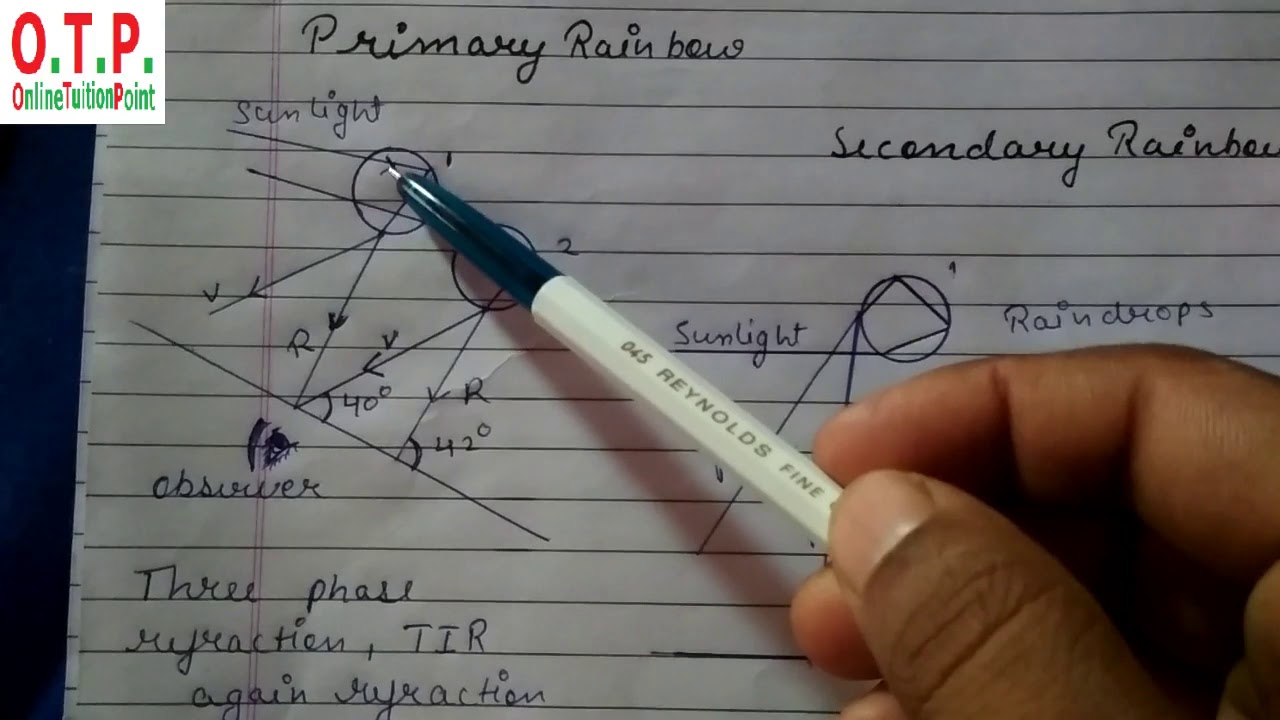 O.T.P.
OnlineTuitionPoint
Primary Rainbow
Sunlight
1
2
V
R
V
R
40°
42°
observer
Three phase
refraction, TIR
again refraction
Secondary Rainbow
1
Raindrops
Sunlight
V
045 REYNOLDS FINE